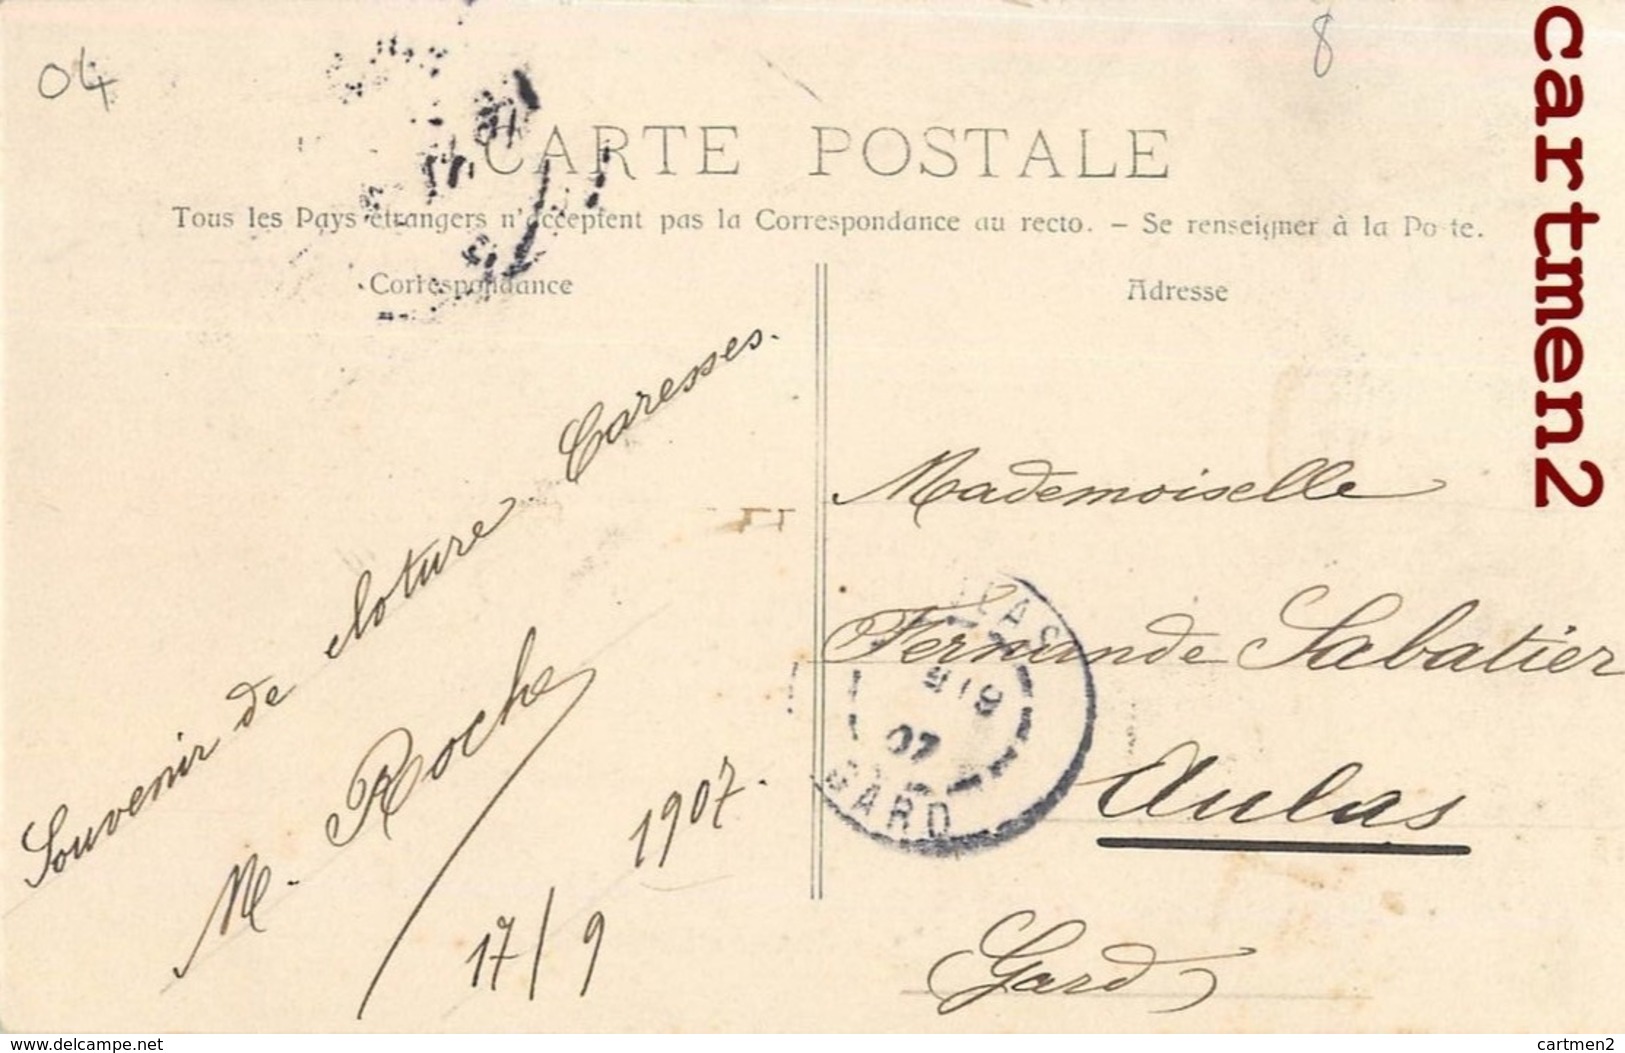 04
8
CARTE POSTALE
Tous les Pays étrangers n'acceptent pas la Correspondance au recto. – Se renseigner à la Poste.
Correspondance
Adresse
Souvenir de cloture Caresses.
M. Roche
17/9 1907.
Mademoiselle
Fernande Sabatier
Aulas
Gard
9
07
GARD
cartmen2
www.delcampe.net
cartmen2